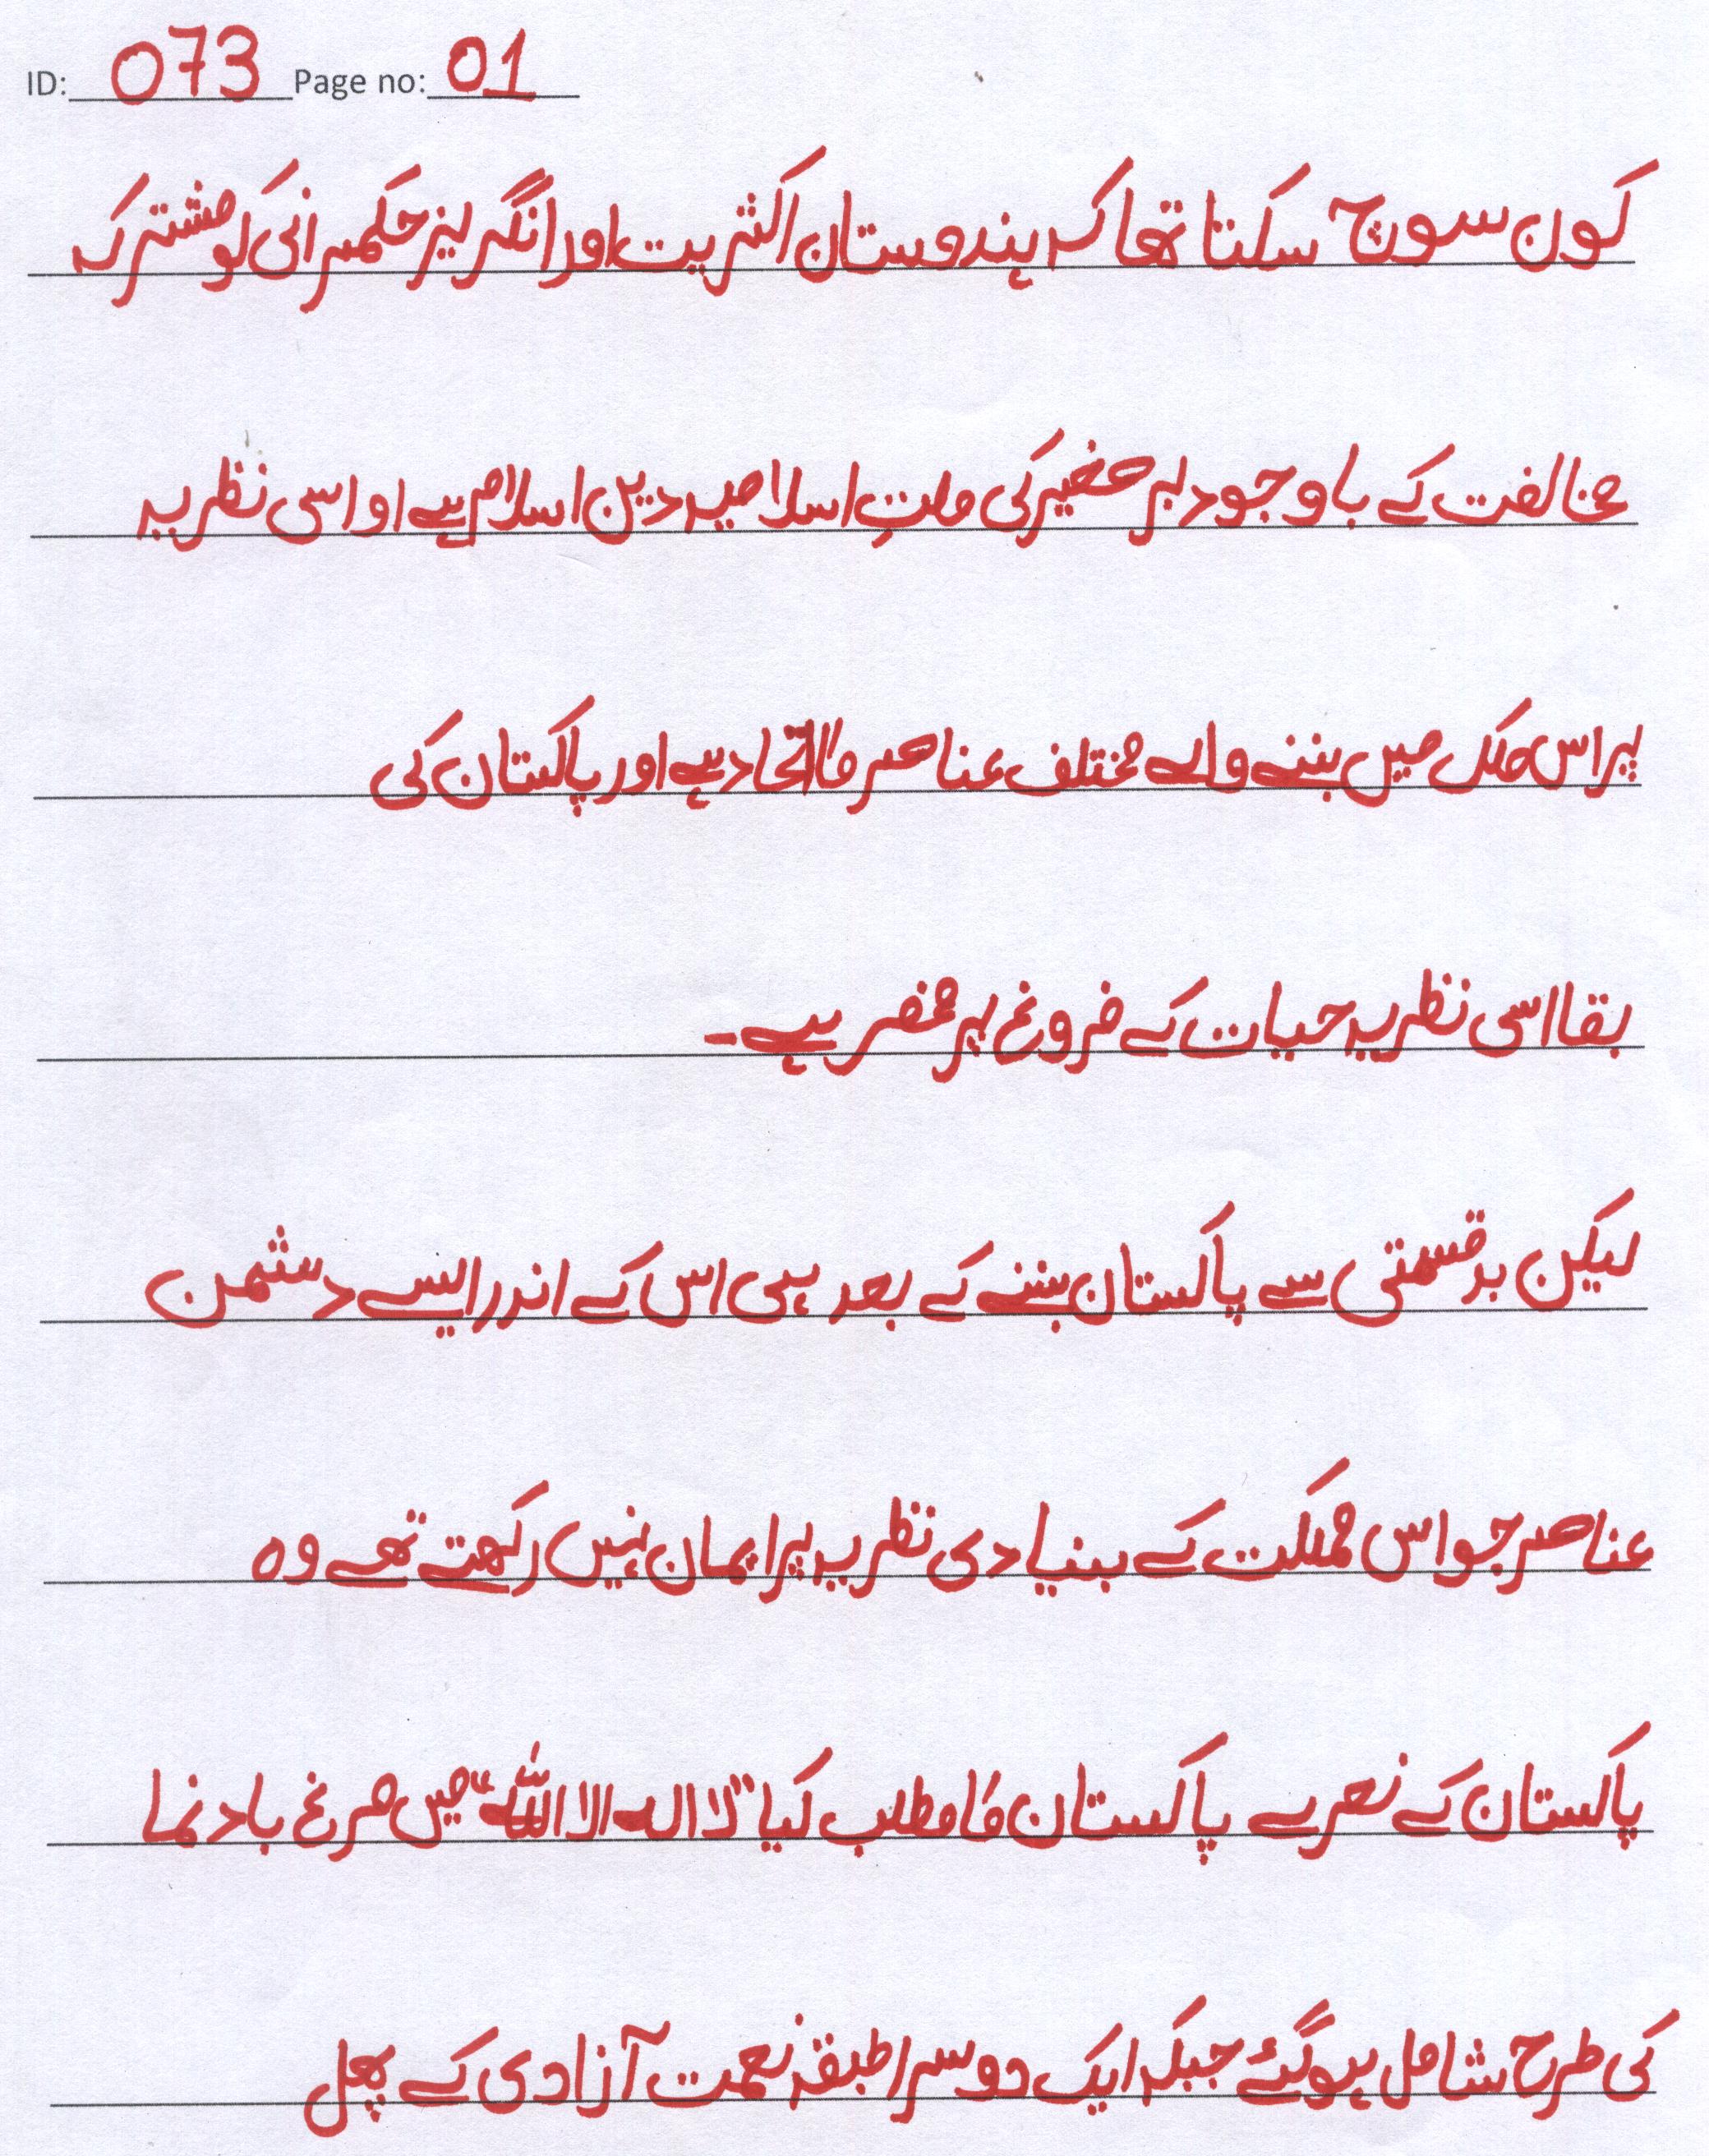 ID: 073 Page no: 01
کون سوچ سکتا تھا کہ ہندوستان اکثریت اور انگریز حکمرانی کو مشترکہ
مخالفت کے باوجود برصغیر کی ملتِ اسلامیہ دین اسلام ہے او اسی نظریہ
پر اس ملک میں بننے والے مختلف عناصر کا اتحاد ہے اور پاکستان کی
بقا اسی نظریہ حیات کے فروغ پر منحصر ہے۔
لیکن بدقسمتی سے پاکستان بننے کے بعد ہی اس کے اندر ایسے دشمن
عناصر جو اس مملکت کے بنیادی نظریہ پر ایمان نہیں رکھتے تھے وہ
پاکستان کے نعرے پاکستان کا مطلب کیا "لا الہ الا اللّٰہ" میں مرغ باد نما
کی طرح شامل ہوگئے جبکہ ایک دوسرا طبقہ نعمت آزادی کے پھل